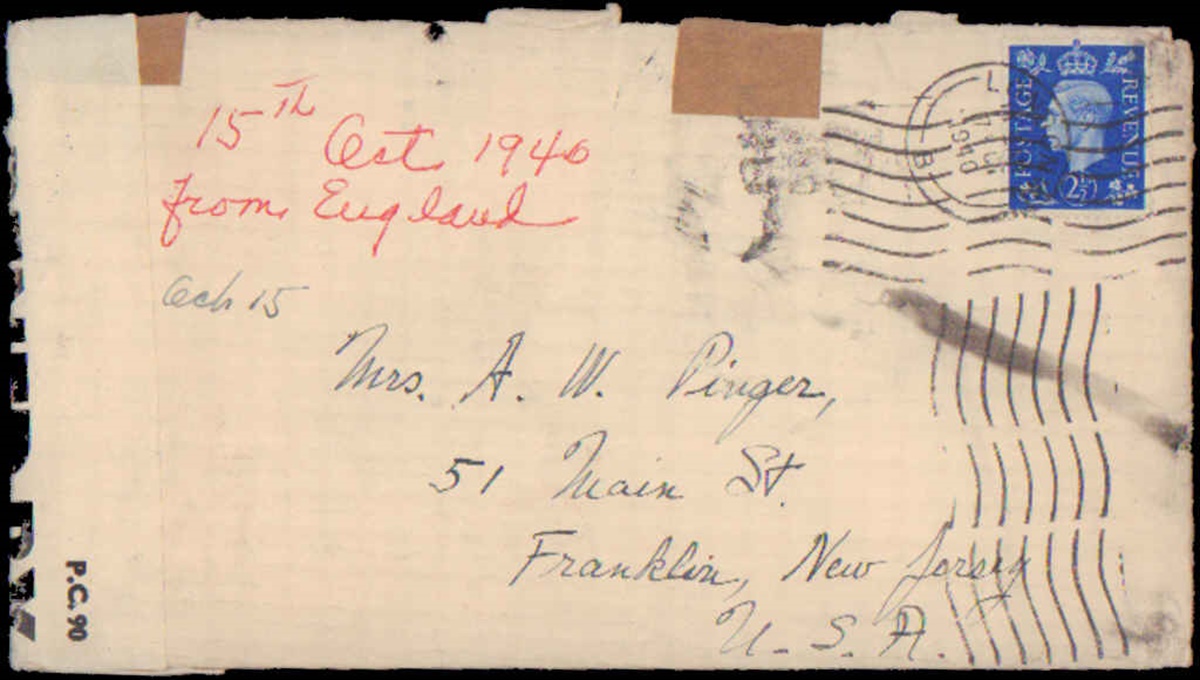 15th Oct 1940
from England
Oct 15
Mrs. A. W. Pinger,
51 Main St.
Franklin, New Jersey
U. S. A.
POSTAGE
REVENUE
2½D
1940
P.C. 90